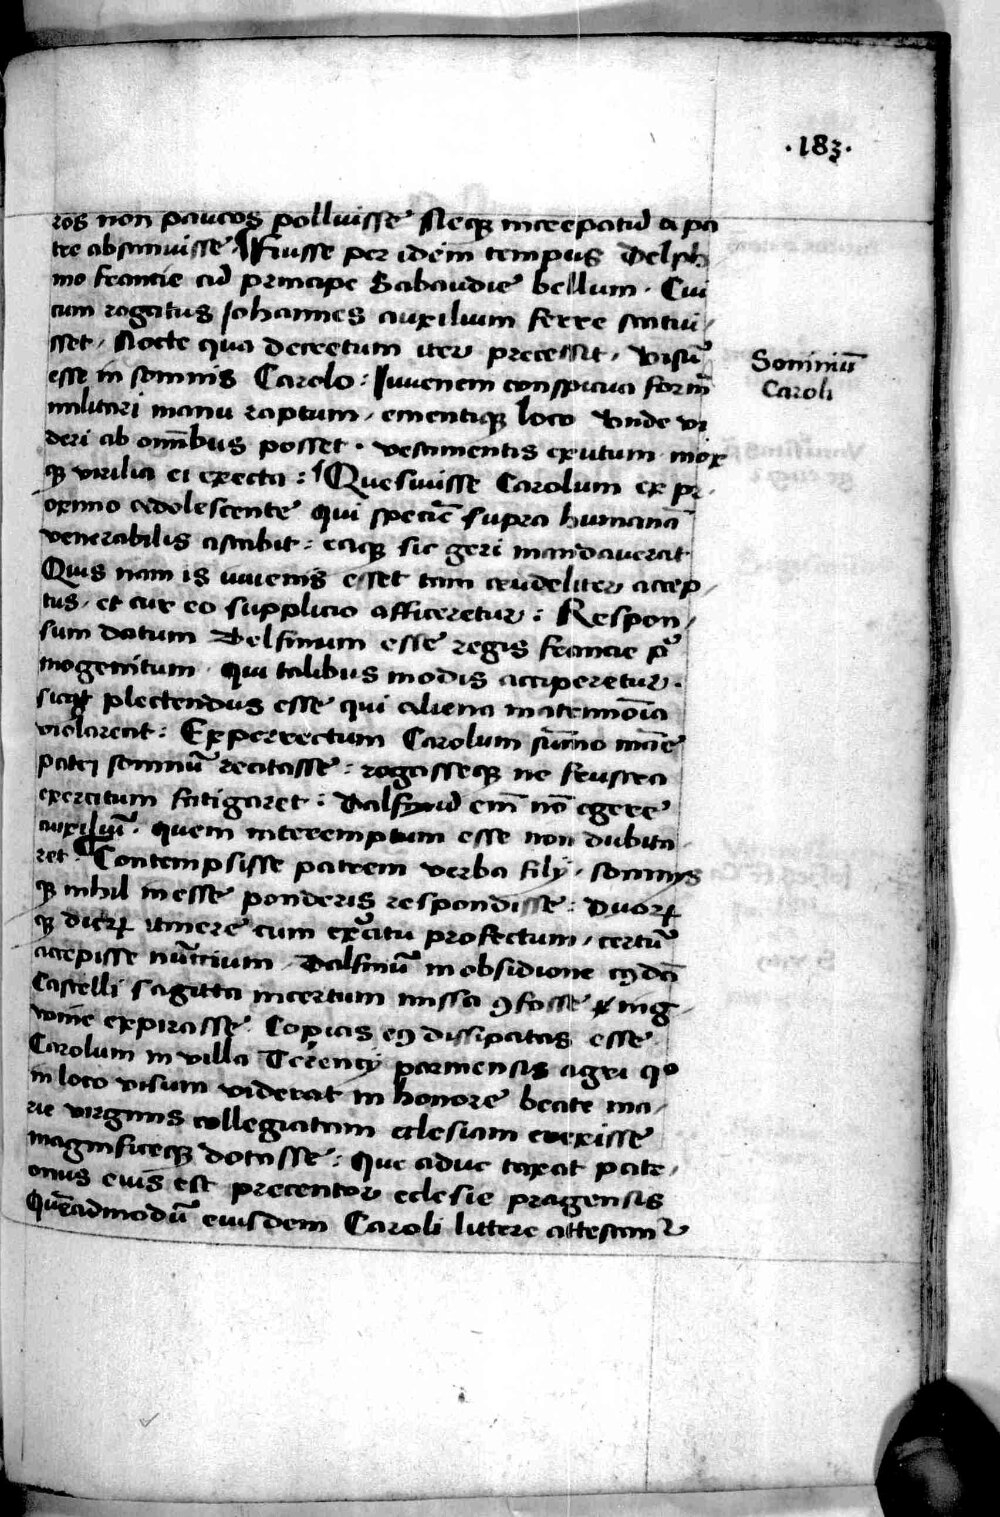 ·183·
ros non paucos polluisse Neq̃ increpatũ a pa
tre abstinuisse. Fuisse per idem tempus Delph
ino francie cũ principe Sabaudie bellum · Cui
cum rogatus Johannes auxilium ferre statui
sset, Nocte qua decretum iter precessit, Visũ
esse in somnis Carolo: Juvenem conspicua formã
militari manu raptum, ementiq̃ loco Vnde vi
deri ab omĩbus posset · vestimentis exutum mox
q̃ virilia ei execta: Quesiuisse Carolum ex pr
oximo adolescente qui specie supra humanã
venerabilis astabit: eaq̃ sic geri mandauerat
Quis nam is iuuenis esset tam crudeliter accep
tus, et cur eo supplicio afficeretur: Respon
sum datum Delfinum esse regis francie pⁱ
mogenitum · qui talibus modis acciperetur.
sicq̃ plectendos esse qui aliena matrimõia
violarent: Experrectum Carolum sũmo mãe
patri somniũ recitasse: rogasseq̃ ne frustra
exercitum fatigaret: Dalfinũ em̃ nõ egere
auxiliũ · quem interemptum esse non dubita
ret · Contempsisse patrem verba filij, somnijs
q̃ nihil inesse ponderis respondisse: Duorꝝ
q̃ dierꝝ itinere cum exercitu profectum, certũ
accepisse nũcium, Dalfinũ in obsidione cꝯdã
Castelli sagitta incertum missa ꝯfosse ing
uine expirasse. Copias eꝯ dissipatas esse
Carolum in villa Terencij parmensis agri qº
in loco visum viderat in honore beate ma
rie virginis collegiatam eclesiam erexisse
magnificeq̃ dotasse: Que aduc extat patr
onus eius est precentor eclesie pragensis
Quẽadmodũ eiusdem Caroli littere attestant᷑
Somniũ
Caroli